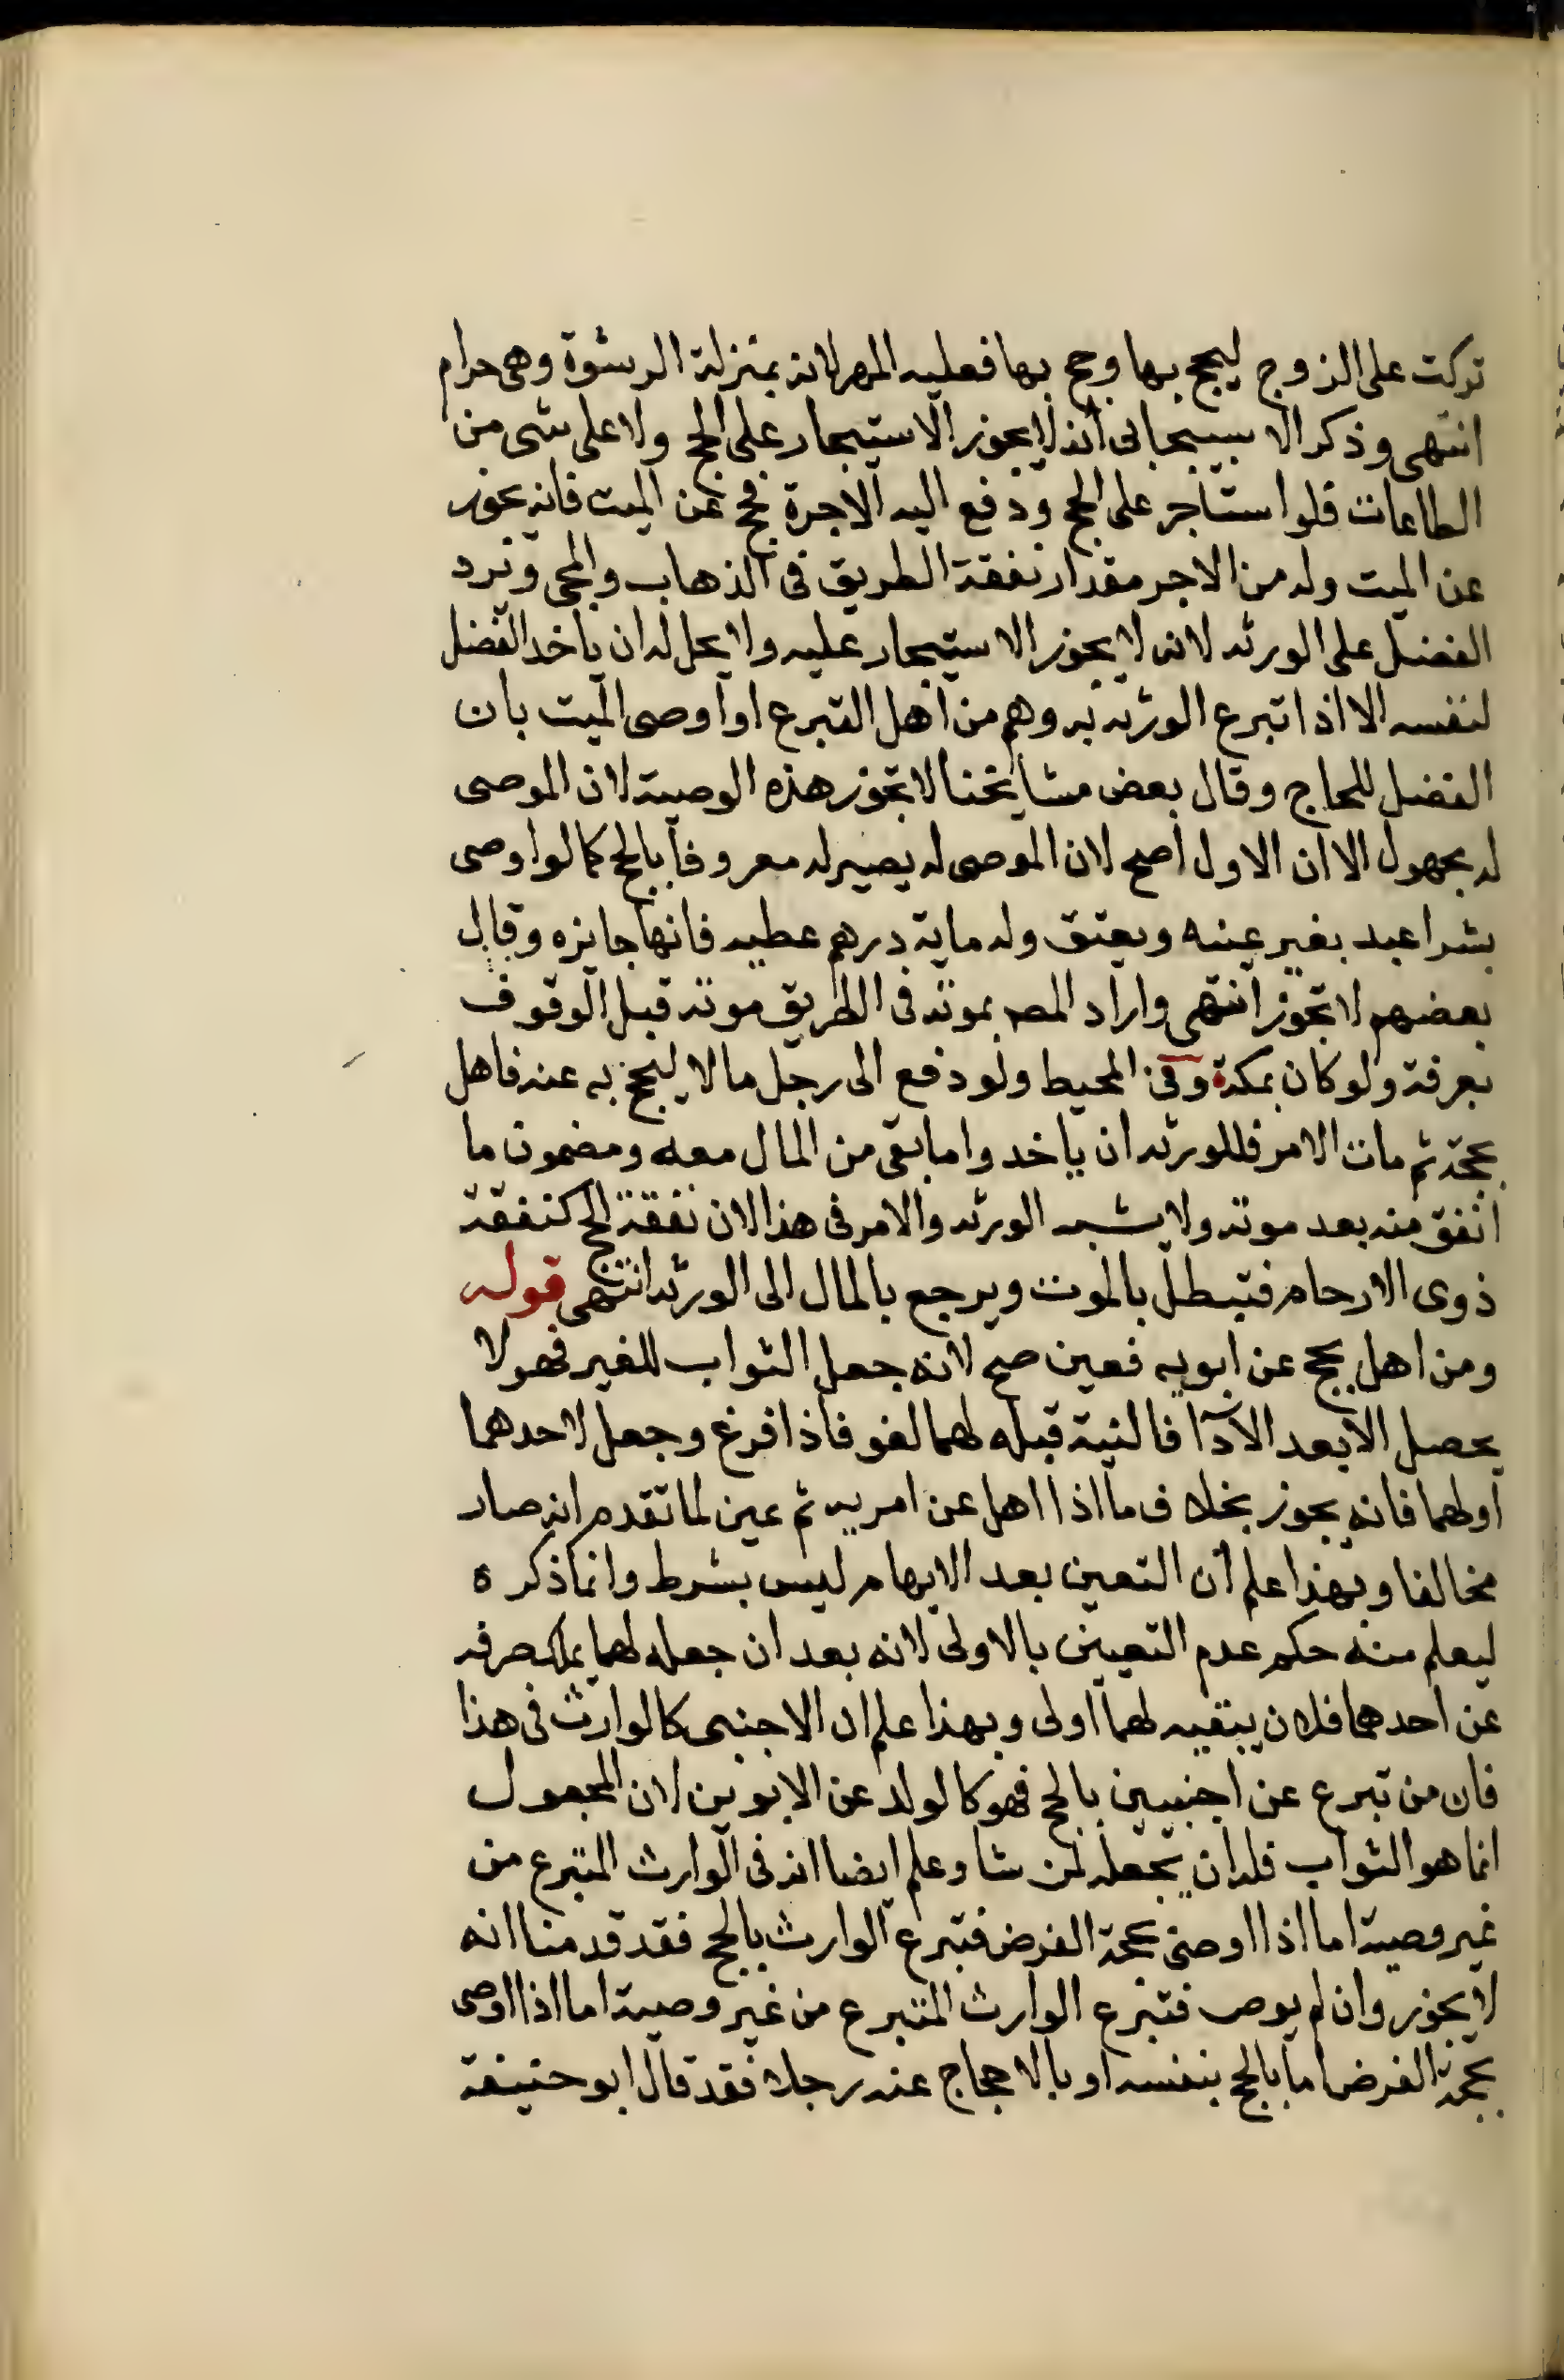 تركت على الزوج ليحج بها وحج بها فعليه المهر لانه بمنزلة الرشوة وهى حرام
انتهى وذكر الاسبيجابى انه لا يجوز الاستيجار على الحج ولا على شى من
الطاعات فلو استاجر على الحج ودفع اليه الاجرة فحج عن الميت فانه يجوز
عن الميت وله من الاجر مقدار نفقة الطريق فى الذهاب والمجى ويرد
الفضل على الورثه لانه لا يجوز الاستيجار عليه ولا يحل له ان ياخد الفضل
لنفسه الا اذا تبرع الورثه به وهم من اهل التبرع او اوصى الميت بان
الفضل للحاج وقال بعض مشايخنا لا تجوز هذه الوصية لان الموصى
له مجهول الا ان الاول اصح لان الموصى له يصير له معروفا بالحج كما لو اوصى
بشرا عبد بغير عينه ويعتق وله ماية درهم عطيه فانها جايزه وقال
بعضهم لا تجوز انتهى واراد المصـ بموته فى الطريق موته قبل الوقوف
بعرفة ولو كان بمكة وفى المحيط ولو دفع الى رجل مالا ليحج به عنه فاهل
بحجة ثم مات الامر فللورثه ان ياخد واما بقى من المال معه ومضمون ما
انفق منه بعد موته ولا يشبه الورثه والامر فى هذا لان نفقة الحج كنفقة
ذوى الارحام فتبطل بالموت ويرجع بالمال الى الورثه انتهى قوله
ومن اهل بحج عن ابويه فعين صح لانه جعل الثواب للغير فهو لا
يحصل الا بعد الآدآ فالنية قبله لهما لغو فاذا فرغ وجعل لاحدهما
او لهما فانه يجوز بخلاف ما اذا اهل عن امريه ثم عين لما تقدم انه صار
مخالفا وبهذا علم ان التعين بعد الابهام ليس بشرط وانما ذكره
ليعلم منه حكم عدم التعيين بالاولى لانه بعد ان جعله لهما يملك صرفه
عن احدهما فلان يبقيه لهما اولى وبهذا علم ان الاجنبى كالوارث فى هذا
فان من تبرع عن اجنبيين بالحج فهو كالولد عن الابوين لان المجعول
انما هو الثواب فله ان يجعله لمن شا وعلم ايضا انه فى الوارث المتبرع من
غير وصية اما اذا اوصى بحجة الفرض فتبرع الوارث بالحج فقد قدمنا انه
لا يجوز وان لم يوص فتبرع الوارث المتبرع من غير وصية اما اذا اوصى
بحجة الفرض اما بالحج بنفسه او بالاحجاج عنه رجلا فقد قال ابو حنيفة